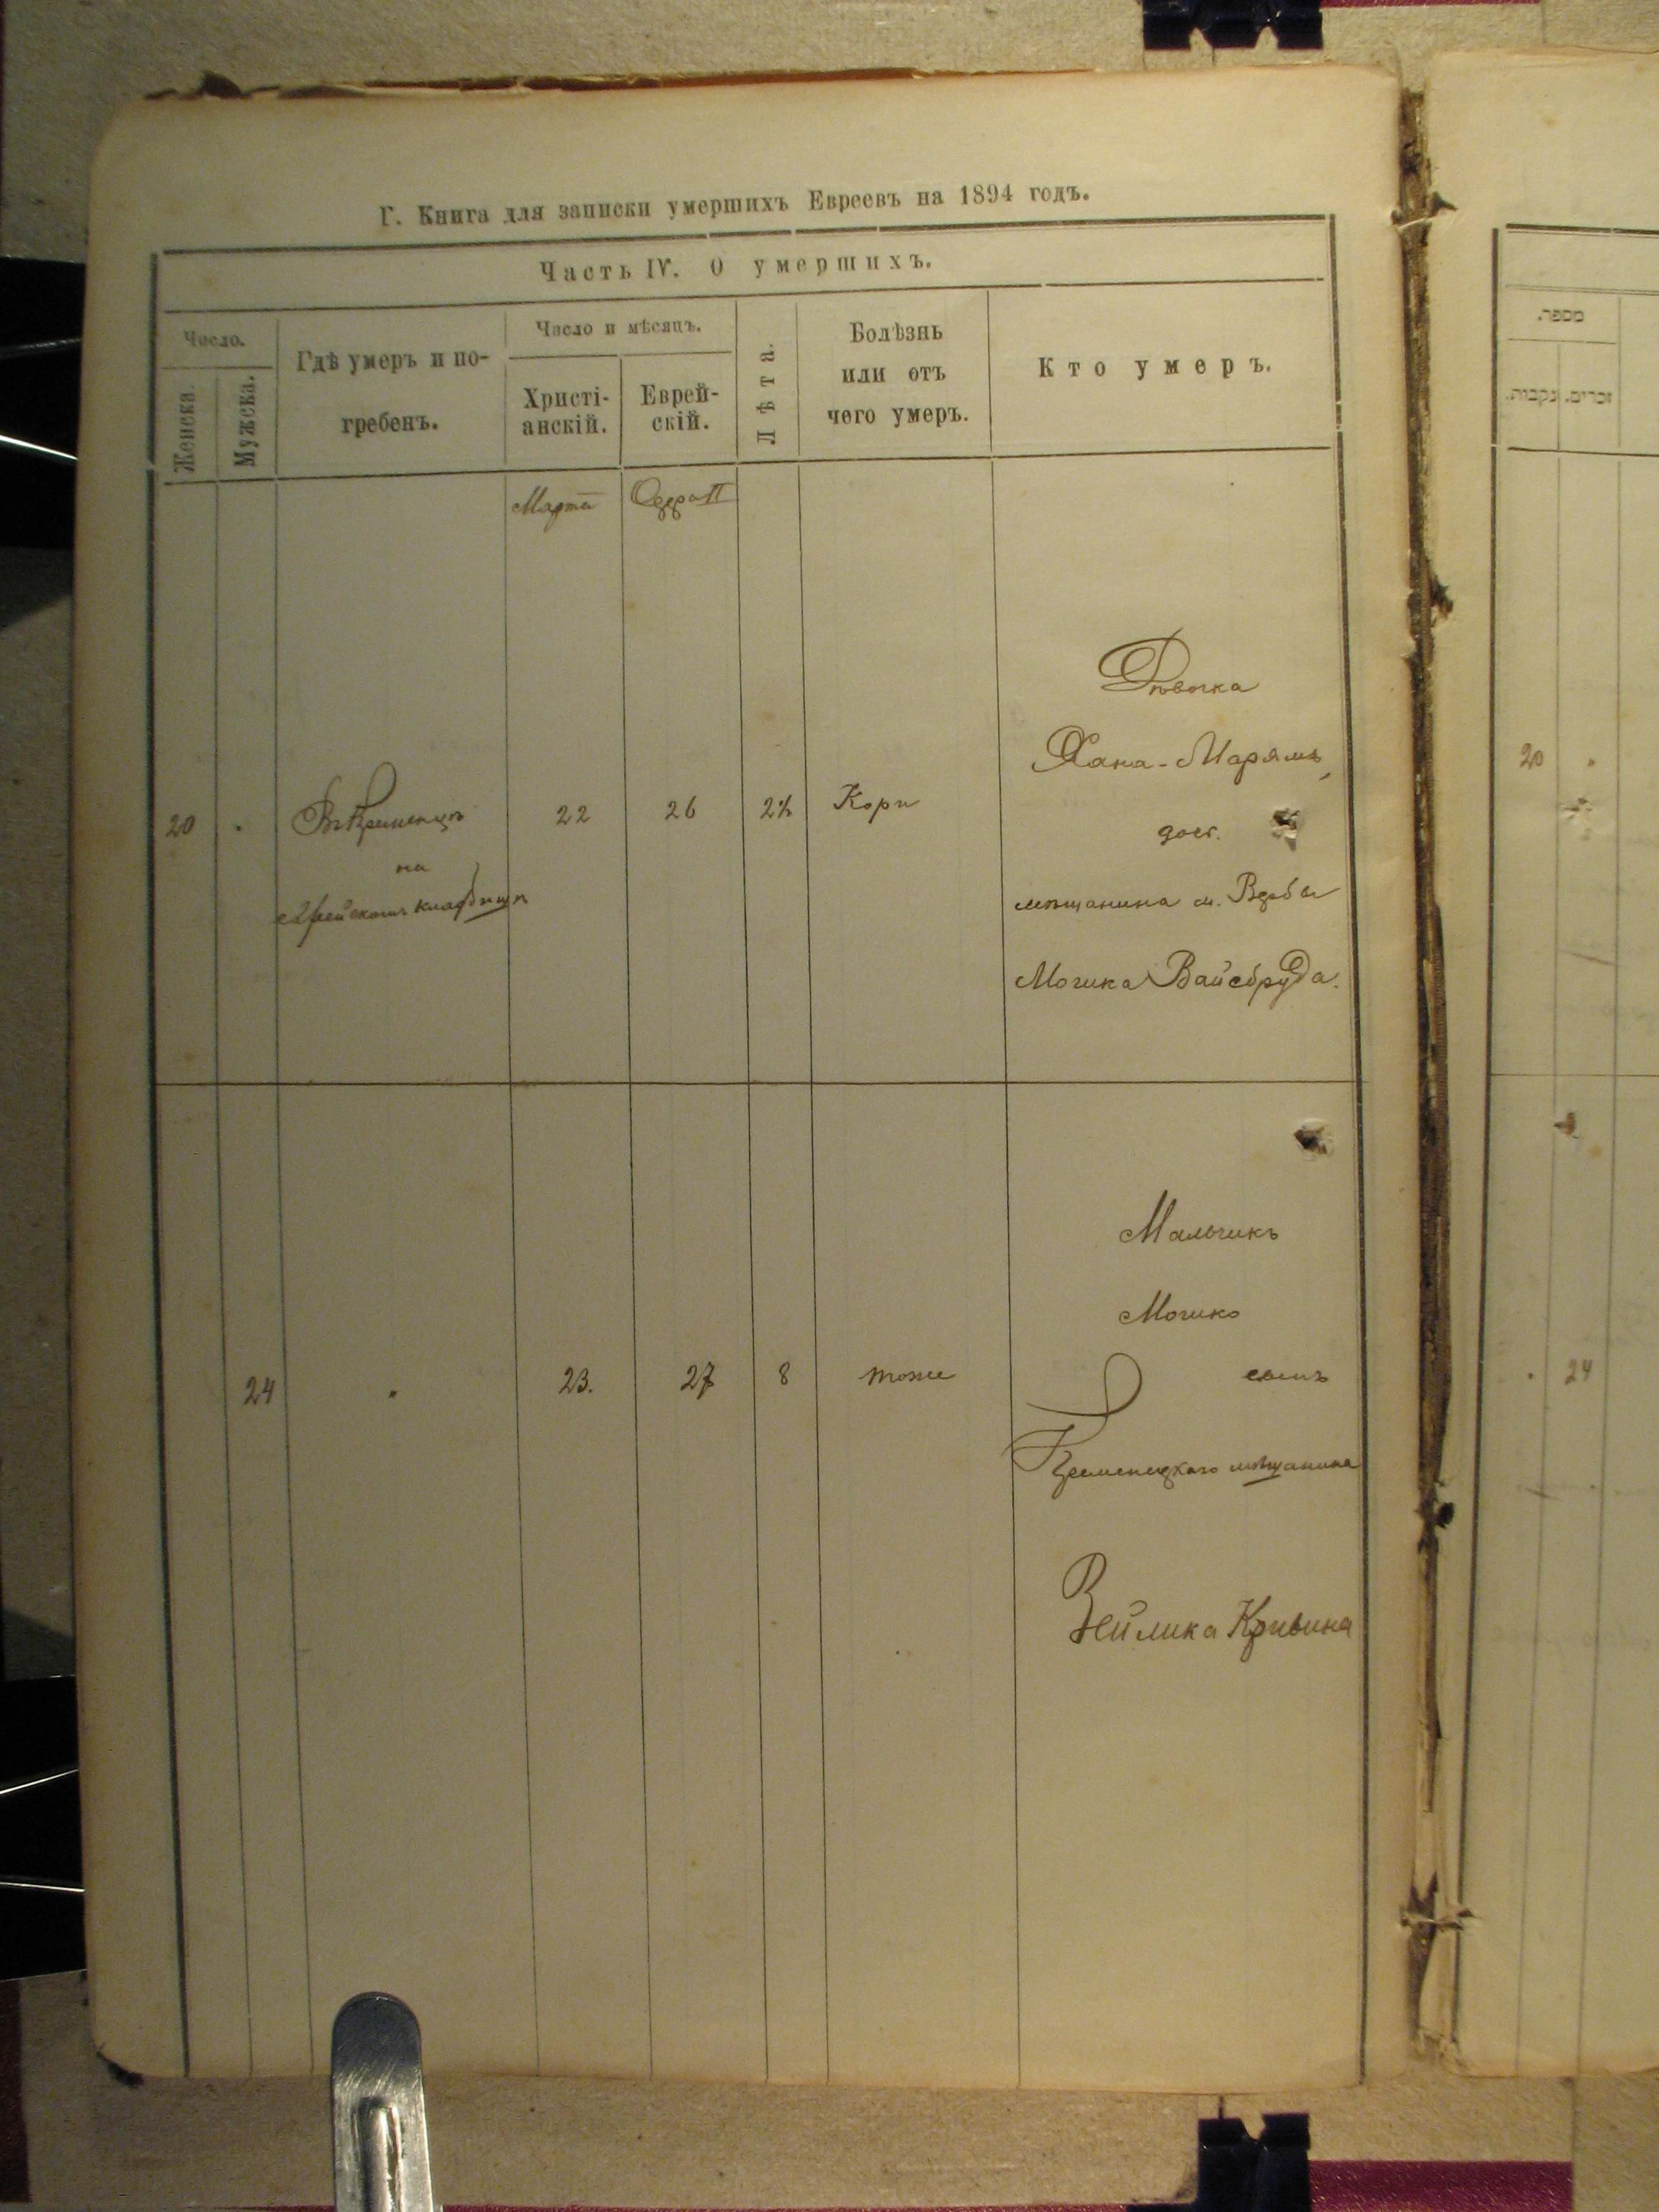 Г. Книга для записки умершихъ Евреевъ на 1894 годъ.
Часть IV. О умершихъ.
Число.
Женска.
Мужска.
Гдѣ умеръ и по-
гребенъ.
Число и мѣсяцъ.
Христі-
анскій.
Еврей-
скій.
Лѣта.
Болѣзнь
или отъ
чего умеръ.
Кто умеръ.
Марта
Адара II
Дѣвочка
Хана-Марямъ,
20
Въ Кременцѣ
22
26
2½
Кори
доч.
на
еврейскомъ кладбищѣ
мѣщанина м. Вербы
Мошка Вайсбруда.
Мальчикъ
Мошко
24
"
23.
27
8
тоже
сынъ
Кременецкаго мѣщанина
Зейлика Кривина
מספר.
זכרים.
נקבות.
20 "
" 24